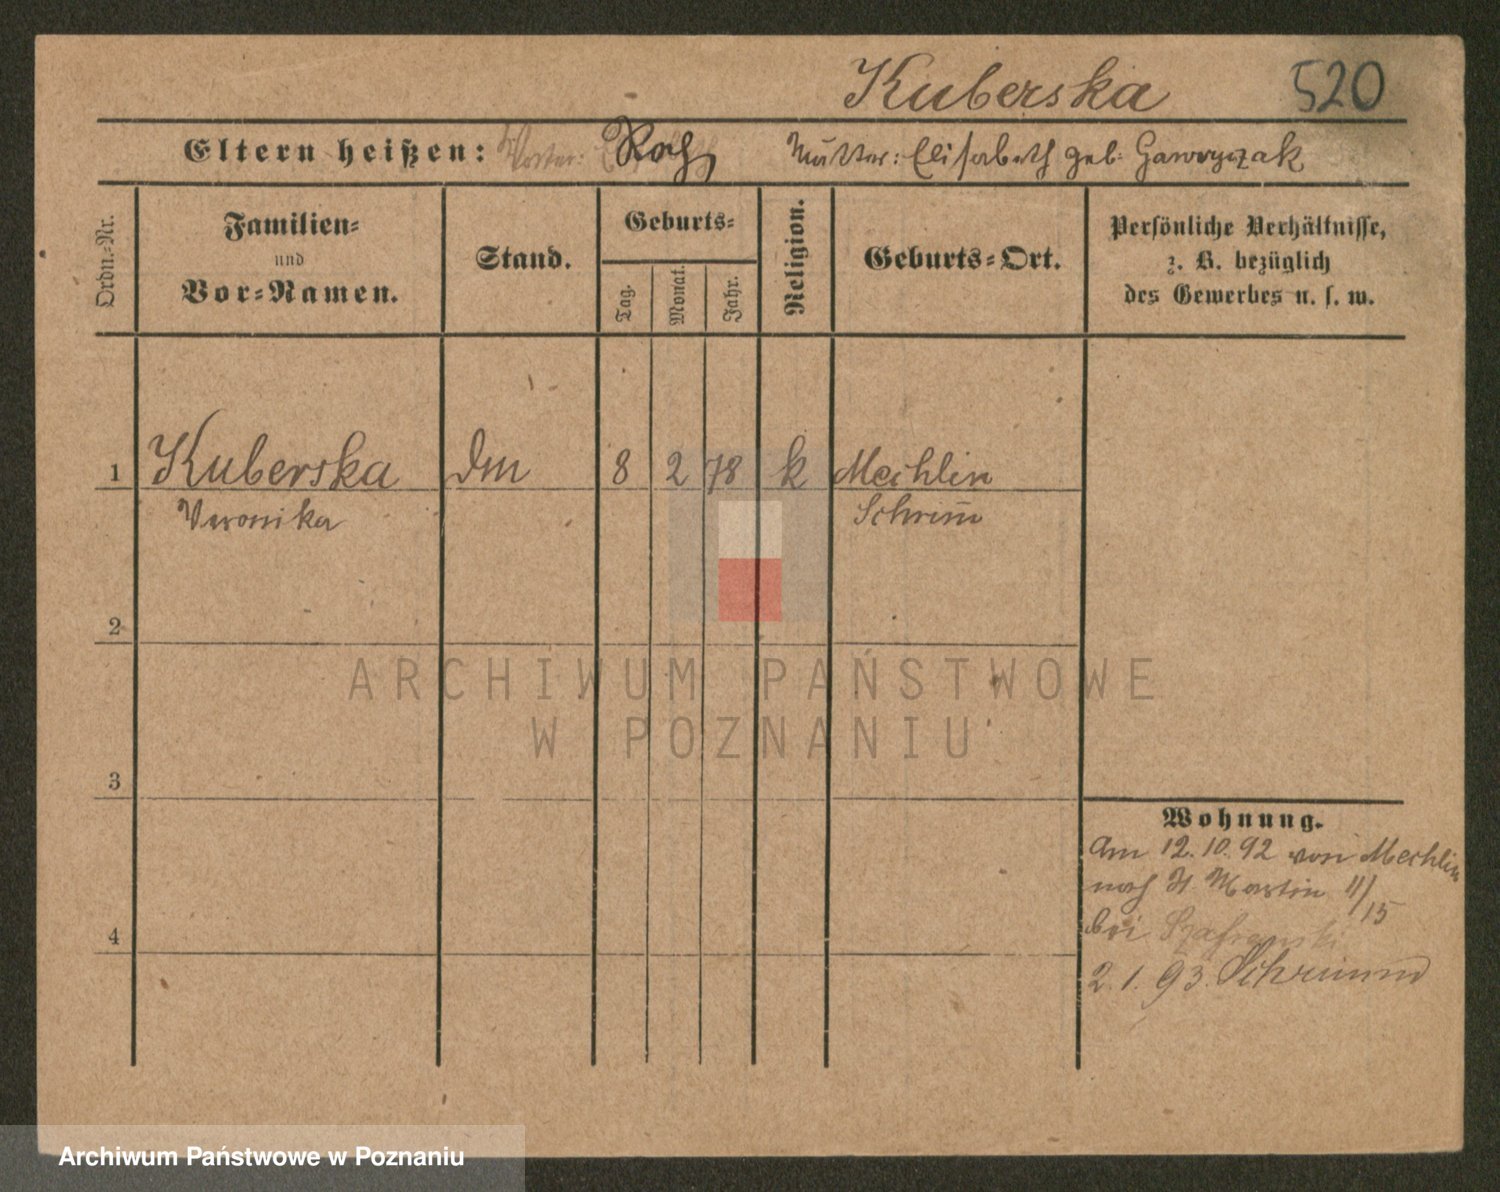 Kuberska 520
Eltern heißen: Vater: Roch Mutter: Elisabeth geb: Gawryczak
Ordn.-Nr.
Familien-
und
Vor-Namen.
Stand.
Geburts-
Tag.
Monat.
Jahr.
Religion.
Geburts-Ort.
Persönliche Verhältnisse,
z. B. bezüglich
des Gewerbes u. s. w.
1 Kuberska Dm 8 2 78 k Mechlin
Veronika Schrim̄
2
3
4
Wohnung.
Am 12.10.92 von Mechlin
nach St Martin 11/15
bei Szafranski
2.1.93. Schrimm
ARCHIWUM PAŃSTWOWE
W POZNANIU
Archiwum Państwowe w Poznaniu